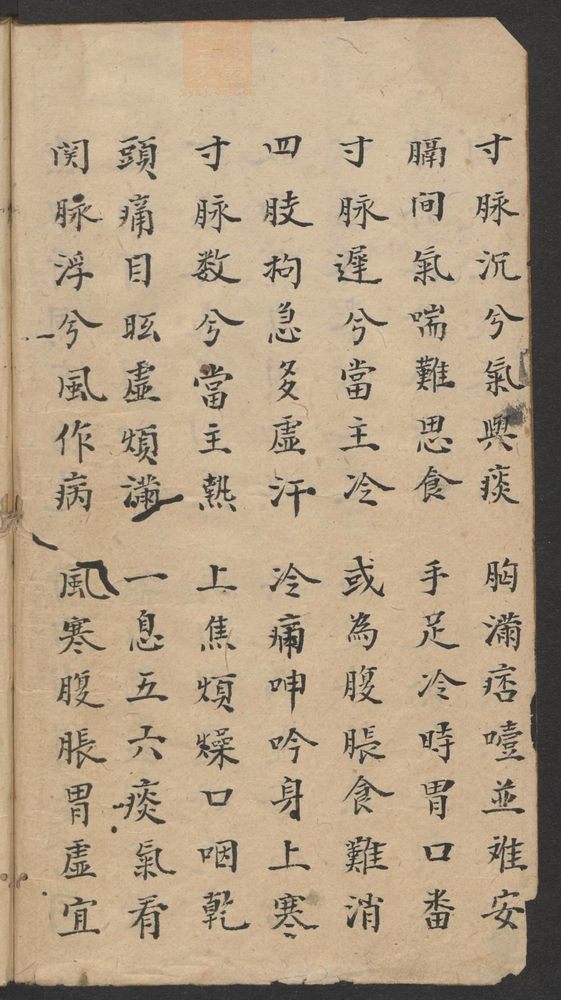 寸脉沉兮氣與痰　胸滿痞噎並难安
膈间氣喘難思食　手足冷時胃口畨
寸脉遲兮當主冷　或為腹脹食難消
四肢拘急多虛汗　冷痛呻吟身上寒
寸脉数兮當主熱　上焦煩燥口咽乾
頭痛目眩虛煩滿　一息五六痰氣看
関脉浮兮風作病　風寒腹脹胃虛宜